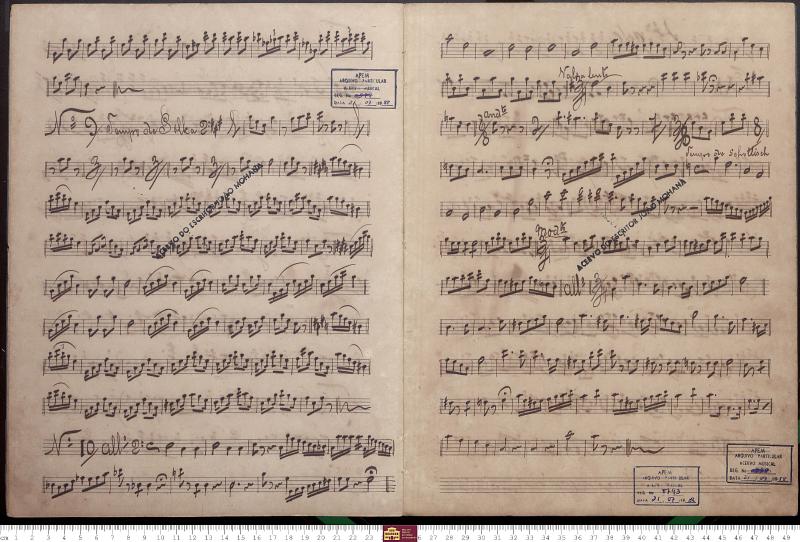 APEM
ARQUIVO PARTICULAR
ACERVO MUSICAL
REG. No
DATA 21 . 07 .
Nº 9 Tempo de Polka
ACERVO DO ESCRITOR JOÃO MOHANA
Nº 10 all°
Valsa lento
andte
Tempo de Schottisch
ACERVO DO ESCRITOR JOÃO MOHANA
modte
all°
APEM
ARQUIVO PARTICULAR
ACERVO MUSICAL
REG. No
DATA 21 . 07 .
APEM
ARQUIVO PARTICULAR
REG. No 0743
DATA 21 . 07 .
cm 1 2 3 4 5 6 7 8 9 10 11 12 13 14 15 16 17 18 19 20 21 22 23 26 27 28 29 30 31 32 33 34 35 36 37 38 39 40 41 42 43 44 45 46 47 48 49